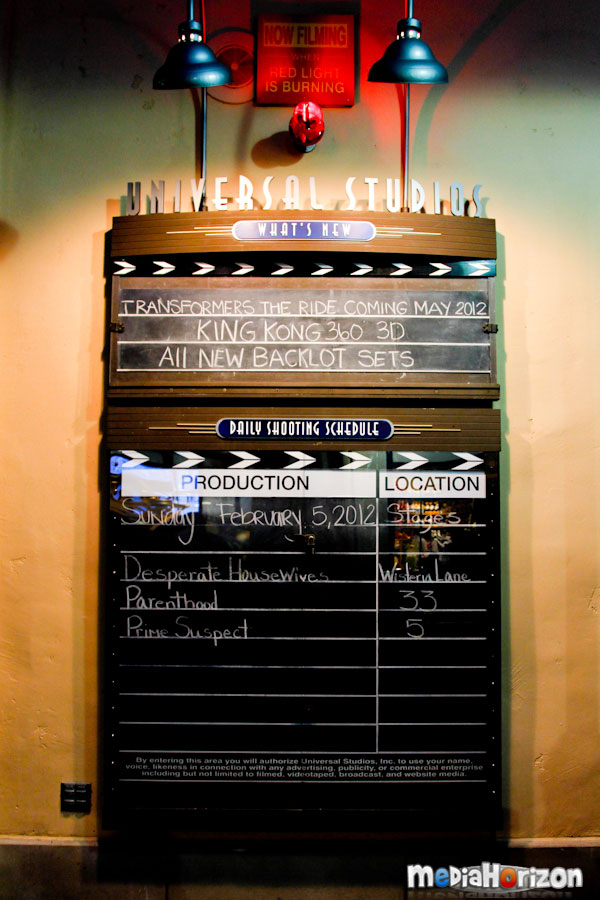 NOW FILMING
WHEN
RED LIGHT
IS BURNING
UNIVERSAL STUDIOS
WHAT'S NEW
TRANSFORMERS THE RIDE COMING MAY 2012
KING KONG 360 3D
All NEW BACKLOT SETS
DAILY SHOOTING SCHEDULE
PRODUCTION LOCATION
Sunday February 5, 2012 Stages
Desperate Housewives Wisteria Lane
Parenthood 33
Prime Suspect 5
By entering this area you will authorize Universal Studios, Inc. to use your name,
voice, likeness in connection with any advertising, publicity, or commercial enterprise
including but not limited to filmed, videotaped, broadcast, and website media.
MEDIAHORIZON